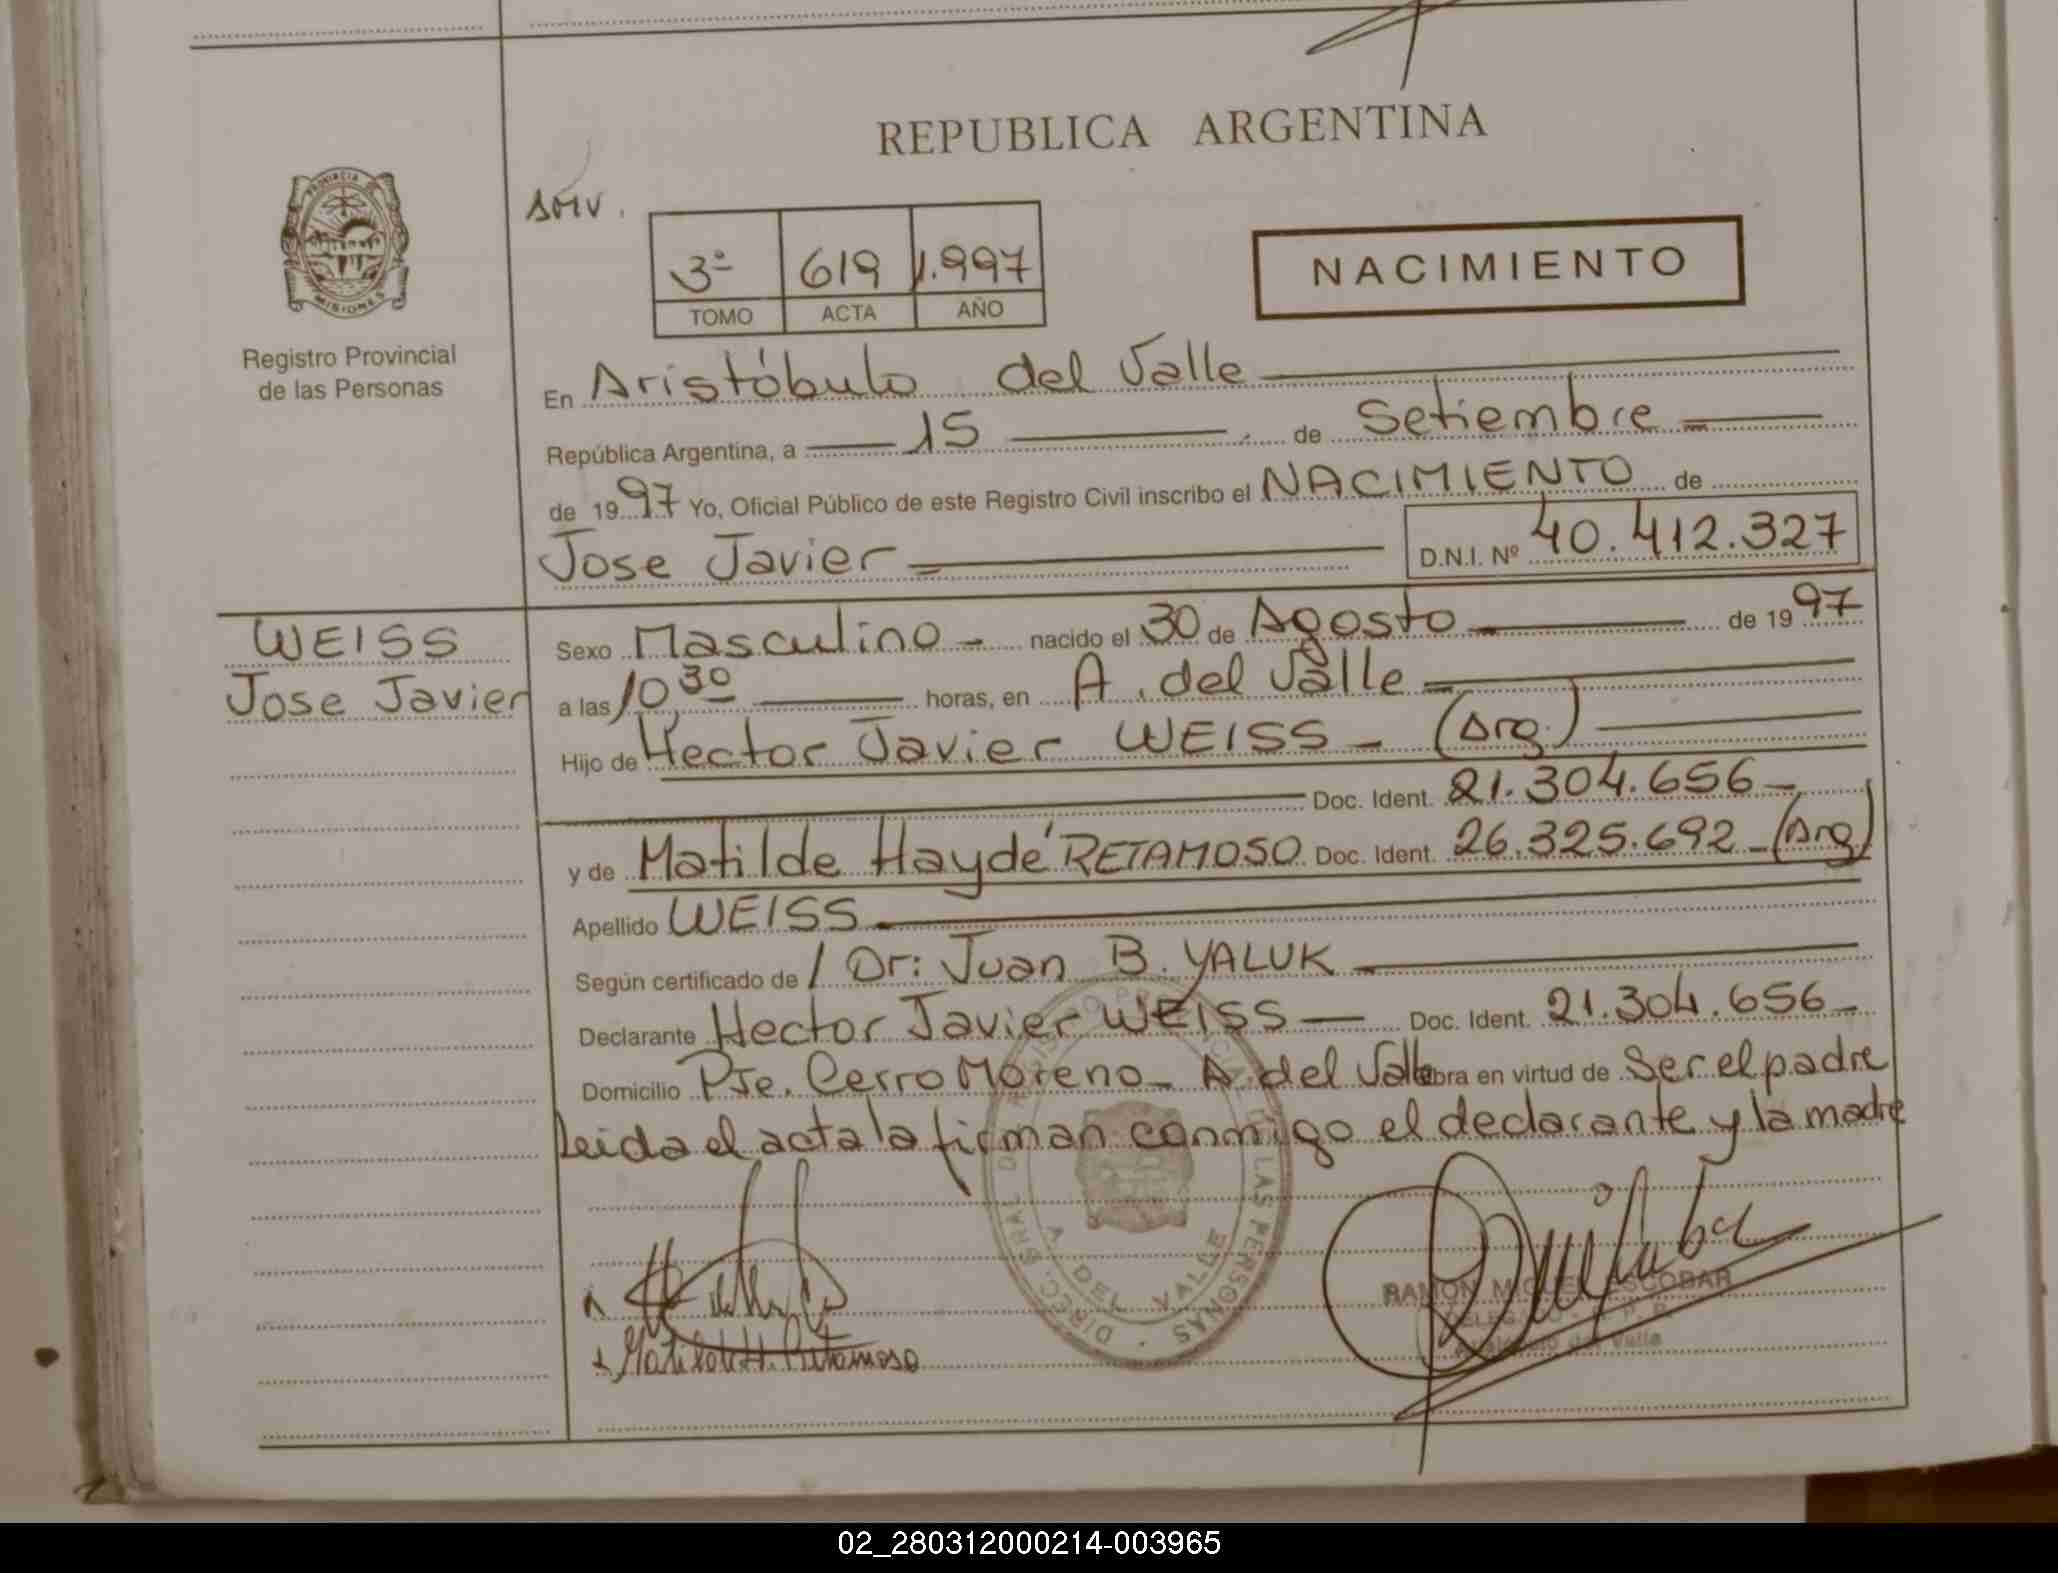 REPUBLICA ARGENTINA
PROVINCIA DE
MISIONES
Registro Provincial
de las Personas
3º 619 1.997
TOMO ACTA AÑO
NACIMIENTO
En Aristóbulo del Valle
República Argentina, a 15 de Setiembre
de 1997 Yo, Oficial Público de este Registro Civil inscribo el NACIMIENTO de
Jose Javier D.N.I. Nº 40.412.327
WEISS
Jose Javier
Sexo Masculino - nacido el 30 de Agosto de 1997
a las 10,30 horas, en A. del Valle
Hijo de Hector Javier WEISS - (Arg.)
Doc. Ident. 21.304.656 -
y de Matilde Haydé RETAMOSO Doc. Ident. 26.325.692 - (Arg)
Apellido WEISS
Según certificado de / Dr: Juan B. YALUK
Declarante Hector Javier WEISS - Doc. Ident. 21.304.656 -
Domicilio Pje. Cerro Moreno - A. del Valle obra en virtud de Ser el padre
Leida el acta la firman conmigo el declarante y la madre
DIREC. GRAL. DEL REGISTRO PROVINCIAL DE LAS PERSONAS
A. DEL VALLE
Matilde H. Retamoso
RAMON MIGUEL ESCOBAR
DELEGADO - R. P. P.
Aristóbulo del Valle
02_280312000214-003965